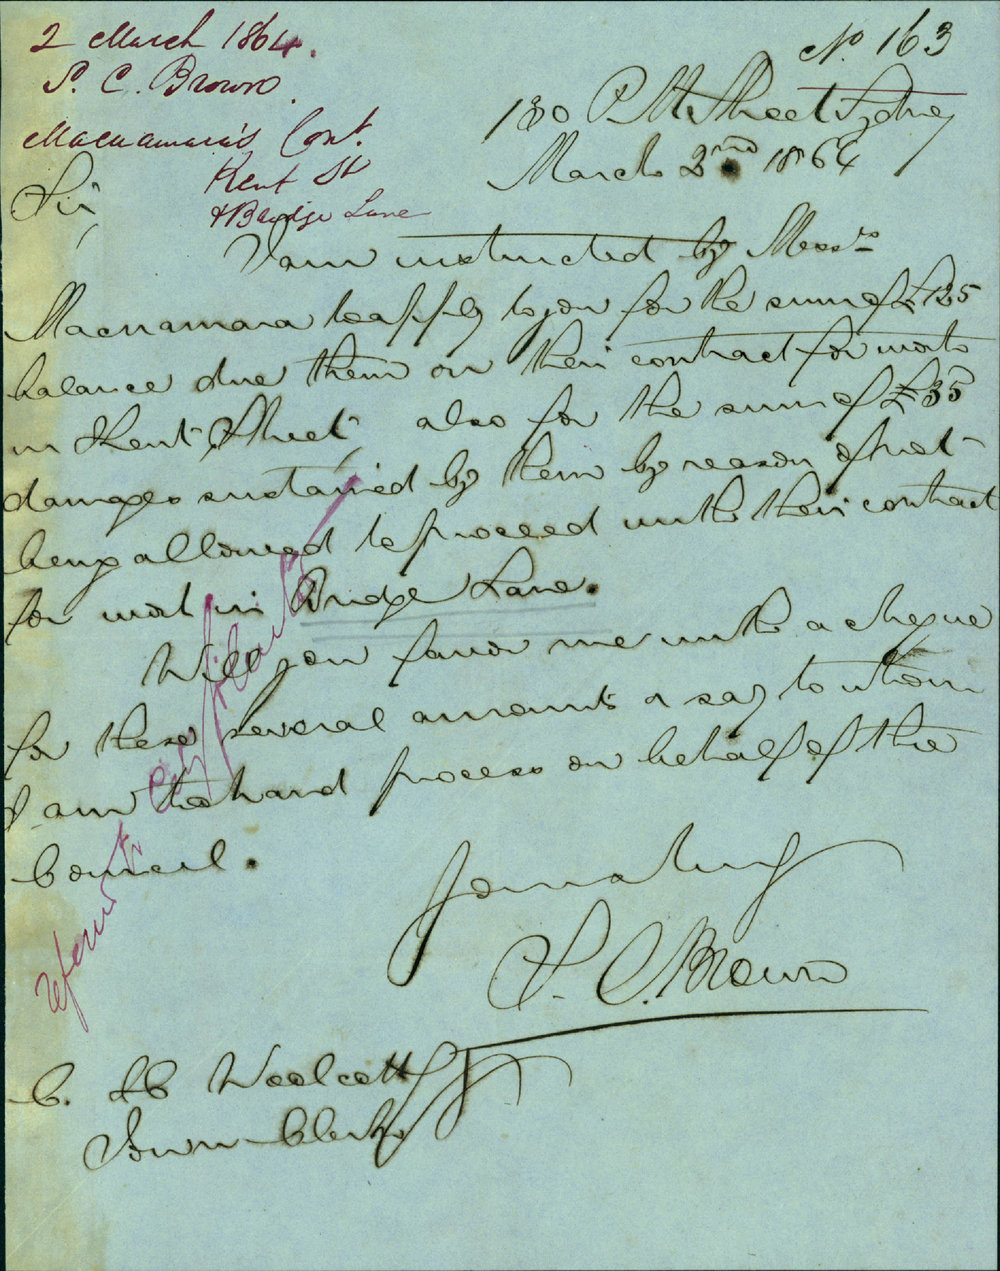 2 March 1864.
S. C. Brown
Macnamara's Cont.
Kent St
& Bridge Lane
No. 163
130 Pitt Street Sydney
March 2nd 1864
Sir
I am instructed by Messrs
Macnamara to apply to you for the sum of £125
balance due them on their contract for work
in Kent Street, also for the sum of £35
damages sustained by them by reason of not
being allowed to proceed with their contract
for work in Bridge Lane.
Will you favor me with a cheque
for these several amounts or say to whom
I am to hand process on behalf of the
Council.
Yours truly
S. C. Brown
C. H. Woolcott
Town Clerk